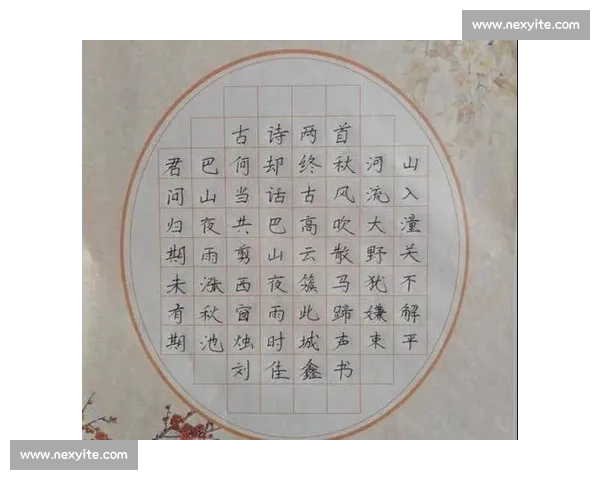 www.nexyite.com
古诗两首
君问归期未有期
巴山夜雨涨秋池
何当共剪西窗烛
却话巴山夜雨时
终古高云簇此城
秋风吹散马蹄声
河流大野犹嫌束
山入潼关不解平
刘佳鑫书
www.nexyite.com